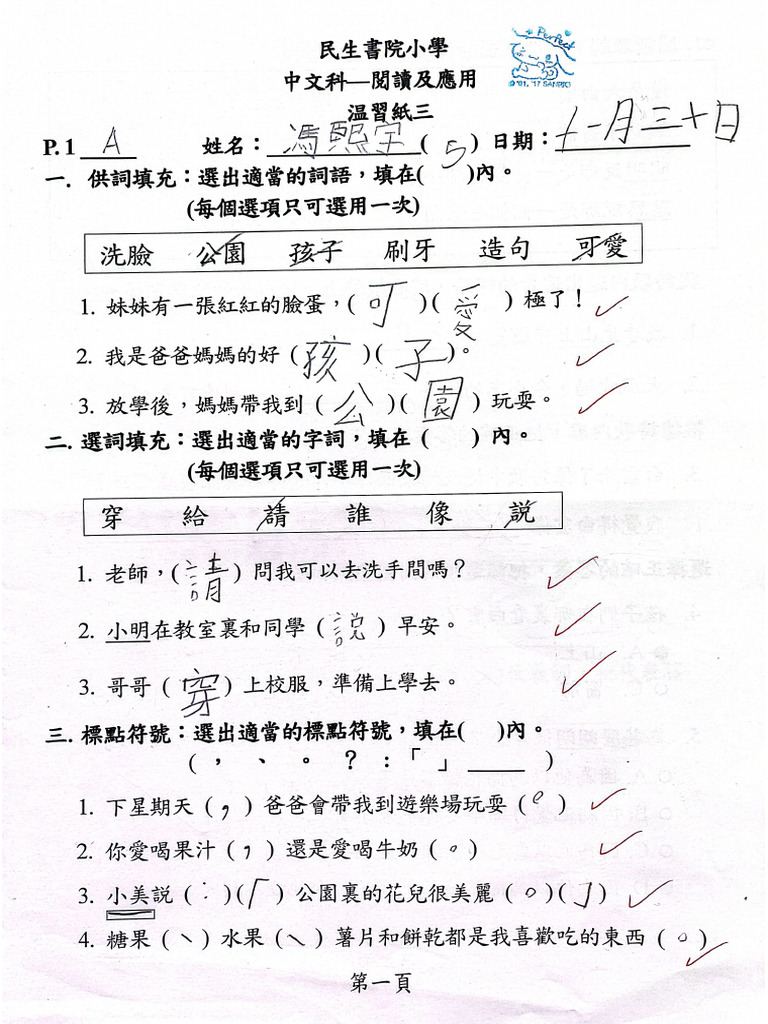 民生書院小學
Perfect
中文科—閱讀及應用
©'01, '17 SANRIO
温習紙三
P. 1 A 姓名：馮熙宇 ( 5 ) 日期：十一月三十日
一. 供詞填充：選出適當的詞語，填在( )內。
(每個選項只可選用一次)
洗臉 公園 孩子 刷牙 造句 可愛
1. 妹妹有一張紅紅的臉蛋，( 可 )( 愛 ) 極了！
2. 我是爸爸媽媽的好 ( 孩 )( 子 )。
3. 放學後，媽媽帶我到 ( 公 )( 園 ) 玩耍。
二. 選詞填充：選出適當的字詞，填在 ( ) 內。
(每個選項只可選用一次)
穿 給 請 誰 像 說
1. 老師，( 請 ) 問我可以去洗手間嗎？
2. 小明在教室裏和同學 ( 說 ) 早安。
3. 哥哥 ( 穿 ) 上校服，準備上學去。
三. 標點符號：選出適當的標點符號，填在( )內。
( ， 、 。 ？ ：「 」 ____ )
1. 下星期天 ( ， ) 爸爸會帶我到遊樂場玩耍 ( 。 )
2. 你愛喝果汁 ( ， ) 還是愛喝牛奶 ( 。 )
3. 小美說 ( ： )( 「 ) 公園裏的花兒很美麗 ( 。 )( 」 )
4. 糖果 ( 、 ) 水果 ( 、 ) 薯片和餅乾都是我喜歡吃的東西 ( 。 )
第一頁